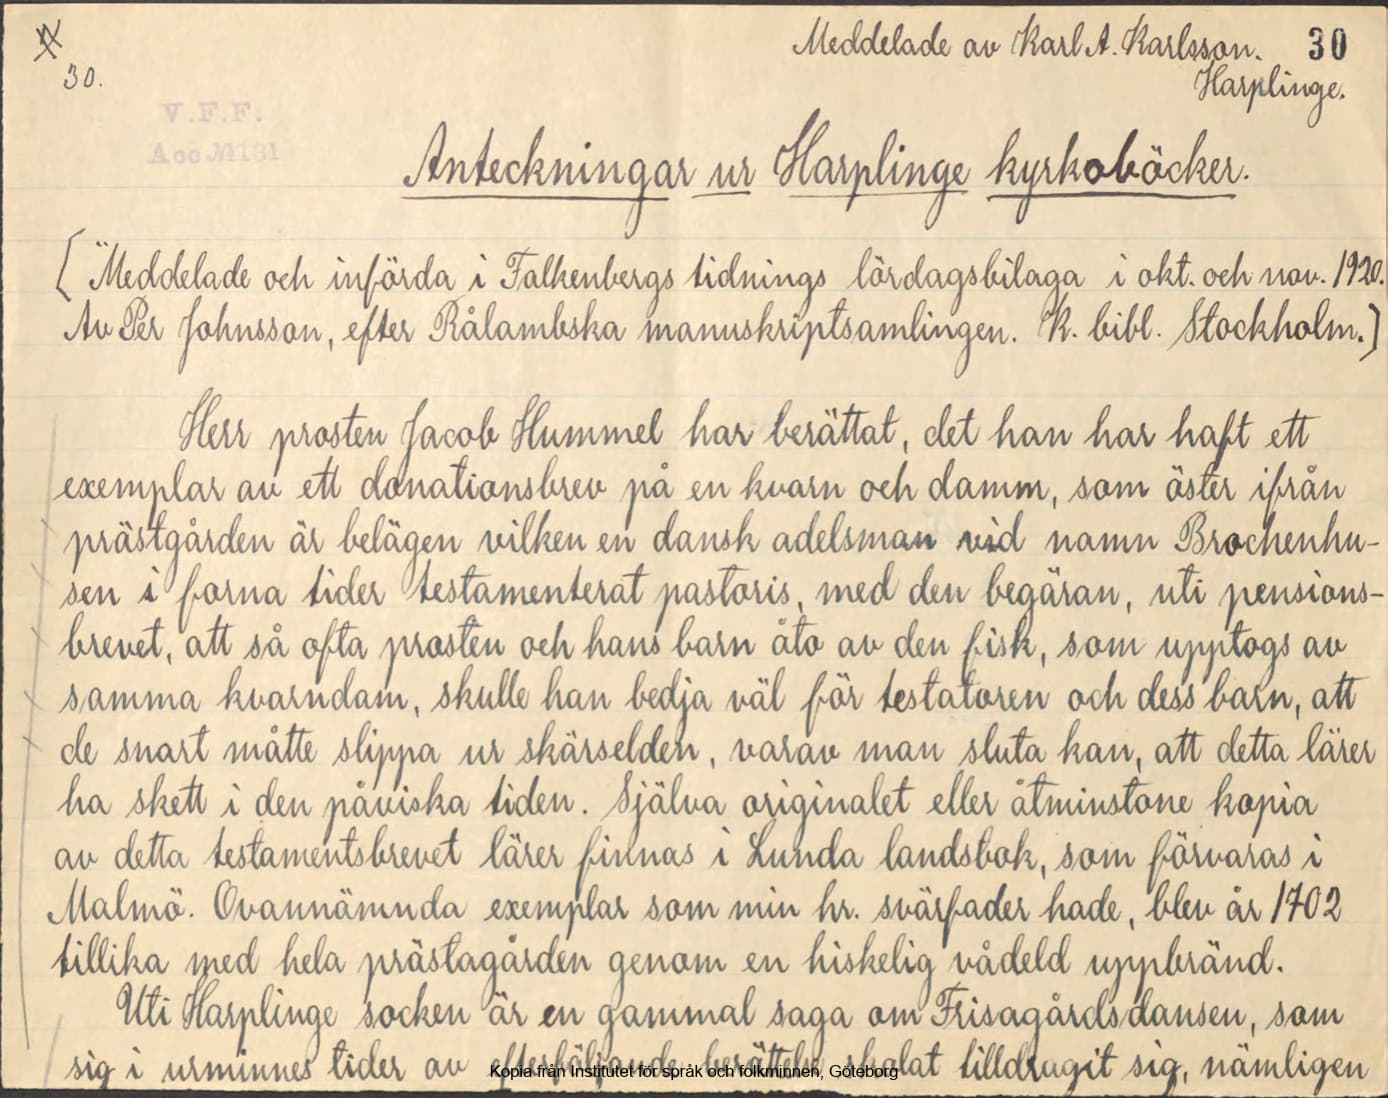 Meddelade av Karl A. Karlsson. 30
30.
Harplinge.
V.F.F.
Acc № 131
Anteckningar ur Harplinge kyrkoböcker.
["Meddelade och införda i Falkenbergs tidnings lördagsbilaga i okt. och nov. 1920.
Av Per Johnsson, efter Rålambska manuskriptsamlingen. K. bibl. Stockholm.]
Herr prosten Jacob Hummel har berättat, det han har haft ett
exemplar av ett donationsbrev på en kvarn och damm, som öster ifrån
prästgården är belägen vilken en dansk adelsman vid namn Brochenhu-
sen i forna tider testamenterat pastoris, med den begäran, uti pensions-
brevet, att så ofta prosten och hans barn åto av den fisk, som upptogs av
samma kvarndam, skulle han bedja väl för testatoren och dess barn, att
de snart måtte slippa ur skärselden, varav man sluta kan, att detta lärer
ha skett i den påviska tiden. Själva originalet eller åtminstone kopia
av detta testamentsbrevet lärer finnas i Lunda landsbok, som förvaras i
Malmö. Ovannämnda exemplar som min hr. svärfader hade, blev år 1702
tillika med hela prästagården genom en hiskelig vådeld uppbränd.
Uti Harplinge socken är en gammal saga om Frisagårdsdansen, som
sig i urminnes tider av efterföljande berättelse skolat tilldragit sig, nämligen
Kopia från Institutet för språk och folkminnen, Göteborg